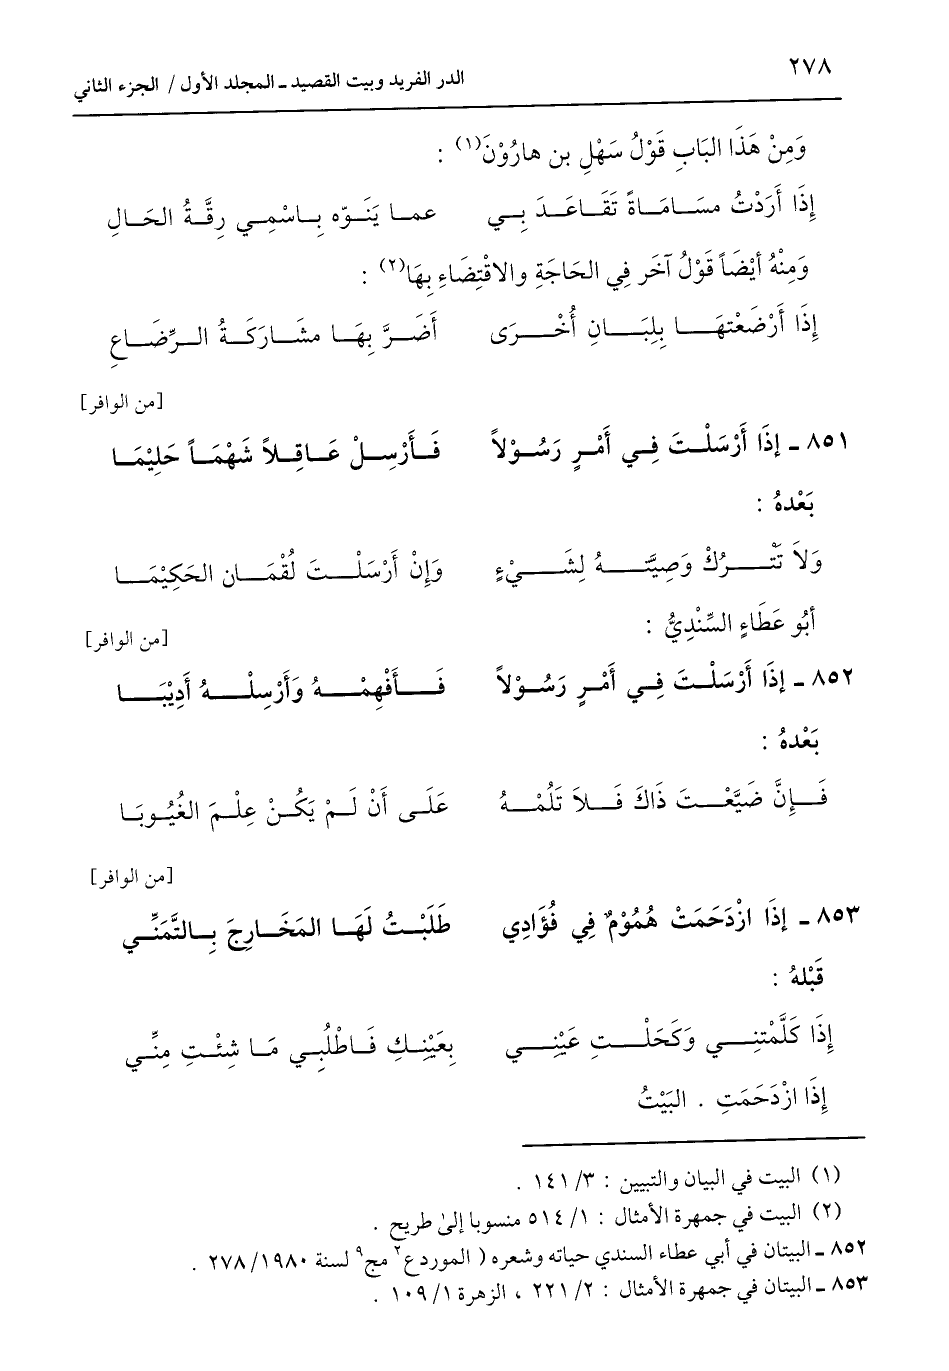 ٢٧٨
الدر الفريد وبيت القصيد ـ المجلد الأول / الجزء الثاني
وَمِنْ هَذَا البَابِ قَوْلُ سَهْلِ بن هارُوْنَ(١) :
إِذَا أَرَدْتُ مسَامَاةً تَقَاعَدَ بِي عما يَنَوّه بِاسْمِي رِقَّةُ الحَالِ
وَمِنْهُ أيْضَاً قَوْلُ آخَر فِي الحَاجَةِ والاقْتِضَاءِ بِهَا(٢) :
إِذَا أَرْضَعْتهَا بِلِبَانِ أُخْرَى أَضَرَّ بِهَا مشَارَكَةُ الرِّضَاعِ
[من الوافر]
٨٥١ ـ إِذَا أَرْسَلْتَ فِي أَمْرٍ رَسُوْلاً فَأَرْسِلْ عَاقِلاً شَهْمَاً حَلِيْمَا
بَعْدهُ :
وَلاَ تَتْرُكْ وَصِيَّتهُ لِشَيْءٍ وَإِنْ أَرْسَلْتَ لُقْمَان الحَكِيْمَا
أبُو عَطَاءٍ السِّنْدِيُّ :
[من الوافر]
٨٥٢ ـ إِذَا أَرْسَلْتَ فِي أَمْرٍ رَسُوْلاً فَأَفْهِمْهُ وَأَرْسِلْهُ أَدِيْبَا
بَعْدهُ :
فَإِنَّ ضَيَّعْتَ ذَاكَ فَلاَ تَلُمْهُ عَلَى أَنْ لَمْ يَكُنْ عِلْمَ الغُيُوبَا
[من الوافر]
٨٥٣ ـ إِذَا ازْدَحَمَتْ هُمُوْمٌ فِي فُؤَادِي طَلَبْتُ لَهَا المَخَارِجَ بِالتَّمَنِّي
قَبْلهُ :
إِذَا كَلَّمْتنِي وَكَحَلْتِ عَيْنِي بِعَيْنِكِ فَاطْلُبِي مَا شِئْتِ مِنِّي
إِذَا ازْدَحَمَتِ . البَيْتُ
(١) البيت في البيان والتبيين : ٣/ ١٤١ .
(٢) البيت في جمهرة الأمثال : ١/ ٥١٤ منسوبا إلىٰ طريح .
٨٥٢ ـ البيتان في أبي عطاء السندي حياته وشعره ( الموردع٢ مج٩ لسنة ١٩٨٠/ ٢٧٨ .
٨٥٣ ـ البيتان في جمهرة الأمثال : ٢/ ٢٢١ ، الزهرة ١/ ١٠٩ .